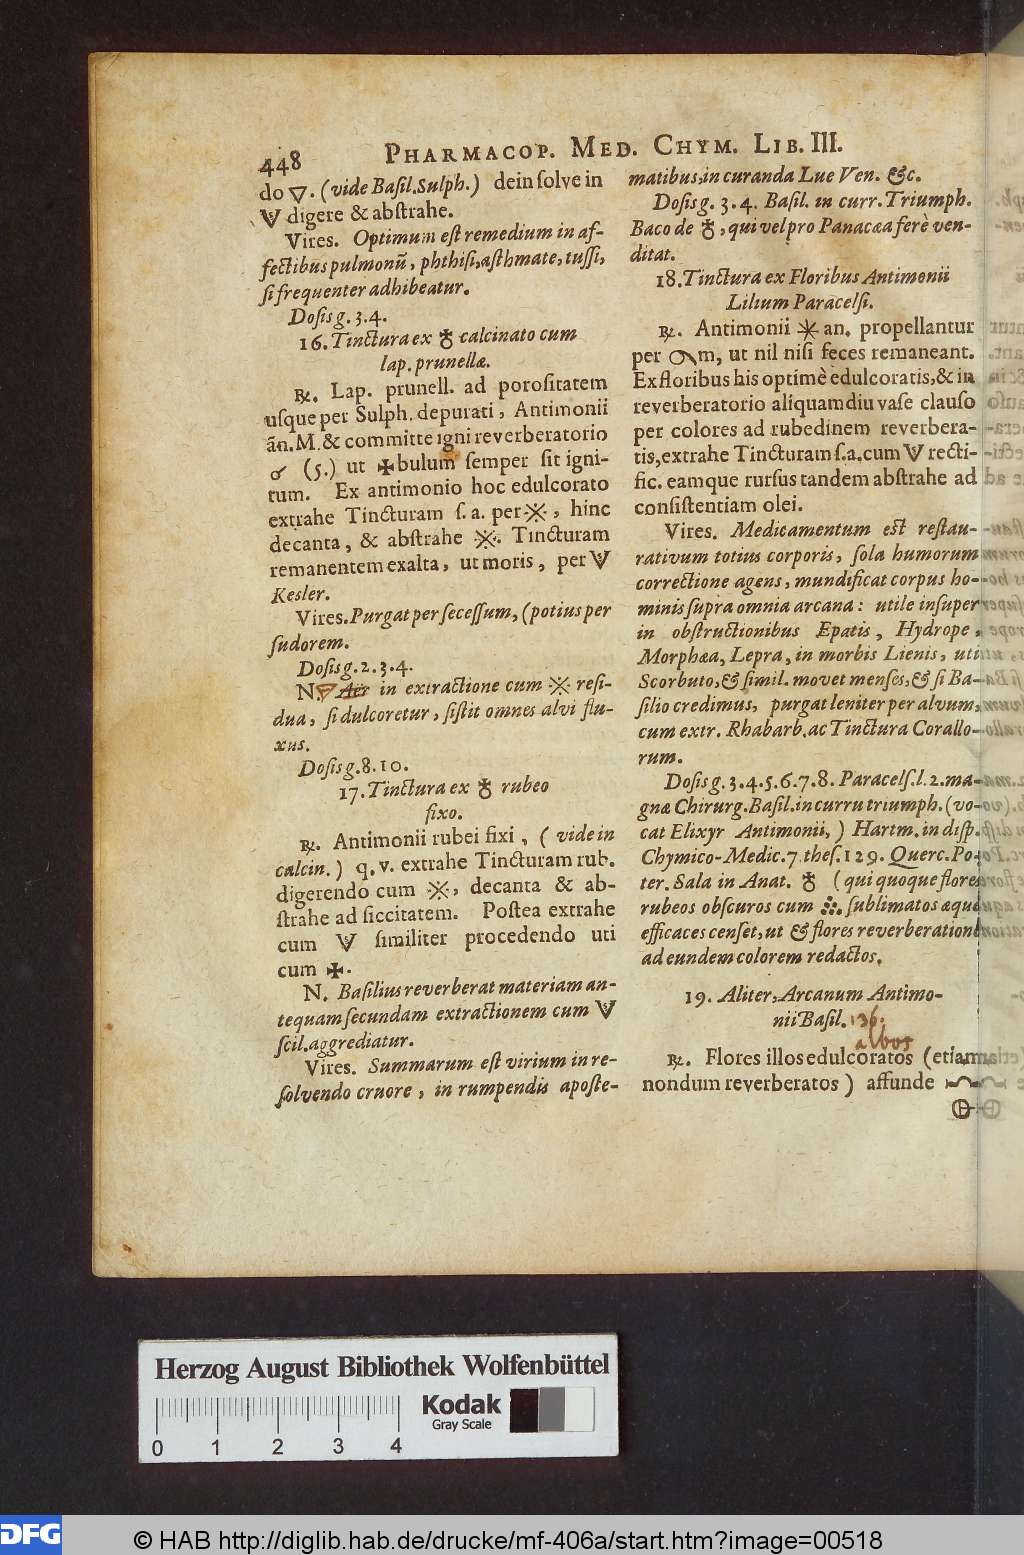 448 PHARMACOP. MED. CHYM. LIB. III.
do 🜄. (vide Basil. Sulph.) dein solve in
digere & abstrahe.
Vires. Optimum est remedium in af-
fectibus pulmonũ, phthisi, asthmate, tussi,
si frequenter adhibeatur.
Dosis g. 3. 4.
16. Tinctura ex ♁ calcinato cum
lap. prunellæ.
℞. Lap. prunell. ad porositatem
usque per Sulph. depurati, Antimonii
ãn. M. & committe igni reverberatorio
♂ (5.) ut ✠bulum semper sit igni-
tum. Ex antimonio hoc edulcorato
extrahe Tincturam s. a. per ※, hinc
decanta, & abstrahe ※. Tincturam
remanentem exalta, ut moris, per
Kesler.
Vires. Purgat per secessum, (potius per
sudorem.
Dosis g. 2. 3. 4.
N. 🜄 Aër in extractione cum ※ resi-
dua, si dulcoretur, sistit omnes alvi flu-
xus.
Dosis g. 8. 10.
17. Tinctura ex ♁ rubeo
fixo.
℞. Antimonii rubei fixi, (vide in
calcin.) q. v. extrahe Tincturam rub.
digerendo cum ※, decanta & ab-
strahe ad siccitatem. Postea extrahe
cum similiter procedendo uti
cum ✠.
N. Basilius reverberat materiam an-
tequam secundam extractionem cum
scil. aggrediatur.
Vires. Summarum est virium in re-
solvendo cruore, in rumpendis aposte-
matibus, in curanda Lue Ven. &c.
Dosis g. 3. 4. Basil. in curr. Triumph.
Baco de ♁, qui vel pro Panacæa ferè ven-
ditat.
18. Tinctura ex Floribus Antimonii
Lilium Paracelsi.
℞. Antimonii ✳ an. propellantur
per m, ut nil nisi feces remaneant.
Ex floribus his optimè edulcoratis, & in
reverberatorio aliquamdiu vase clauso
per colores ad rubedinem reverbera-
tis, extrahe Tincturam s. a. cum recti-
fic. eamque rursus tandem abstrahe ad
consistentiam olei.
Vires. Medicamentum est restau-
rativum totius corporis, sola humorum
correctione agens, mundificat corpus ho-
minis supra omnia arcana: utile insuper
in obstructionibus Epatis, Hydrope,
Morphæa, Lepra, in morbis Lienis, uti
Scorbuto, & simil. movet menses, & si Ba-
silio credimus, purgat leniter per alvum,
cum extr. Rhabarb. ac Tinctura Corallo-
rum.
Dosis g. 3. 4. 5. 6. 7. 8. Paracels. l. 2. ma-
gnæ Chirurg. Basil. in curru triumph. (vo-
cat Elixyr Antimonii,) Hartm. in disp.
Chymico-Medic. 7 thes. 129. Querc. Po-
ter. Sala in Anat. ♁ (qui quoque flores
rubeos obscuros cum sublimatos æque
efficaces censet, ut & flores reverberatione
ad eundem colorem redactos.
19. Aliter, Arcanum Antimo-
nii Basil. 136.
albos
℞. Flores illos edulcoratos (etiam
nondum reverberatos) affunde
Herzog August Bibliothek Wolfenbüttel
Kodak
Gray Scale
0 1 2 3 4
DFG © HAB http://diglib.hab.de/drucke/mf-406a/start.htm?image=00518